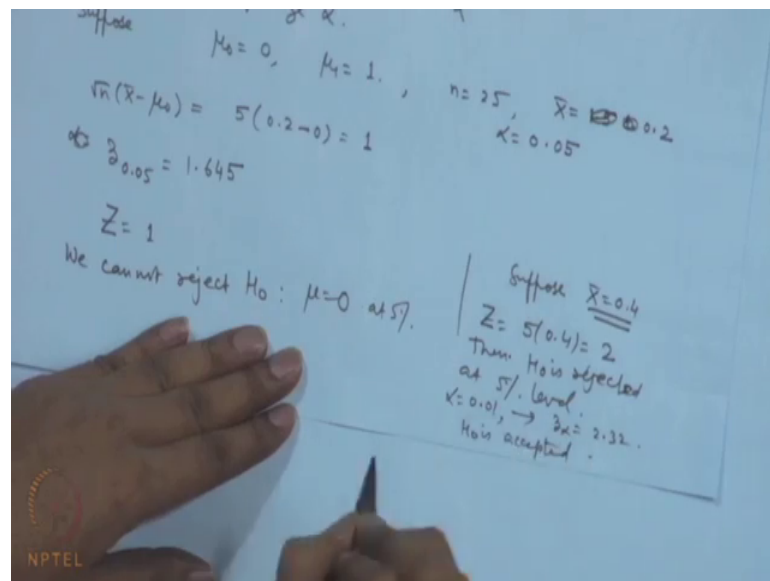 Suppose
μ₀ = 0, μ₁ = 1. , n = 25, x̄ = 0.2
√n(x̄-μ₀) = 5(0.2-0) = 1
α = 0.05
z0.05 = 1.645
Z = 1
We cannot reject H₀ : μ=0 at 5%.
Suppose x̄=0.4
Z = 5(0.4) = 2
Then H₀ is rejected
at 5% level.
α=0.01, → zα = 2.32.
H₀ is accepted.
NPTEL